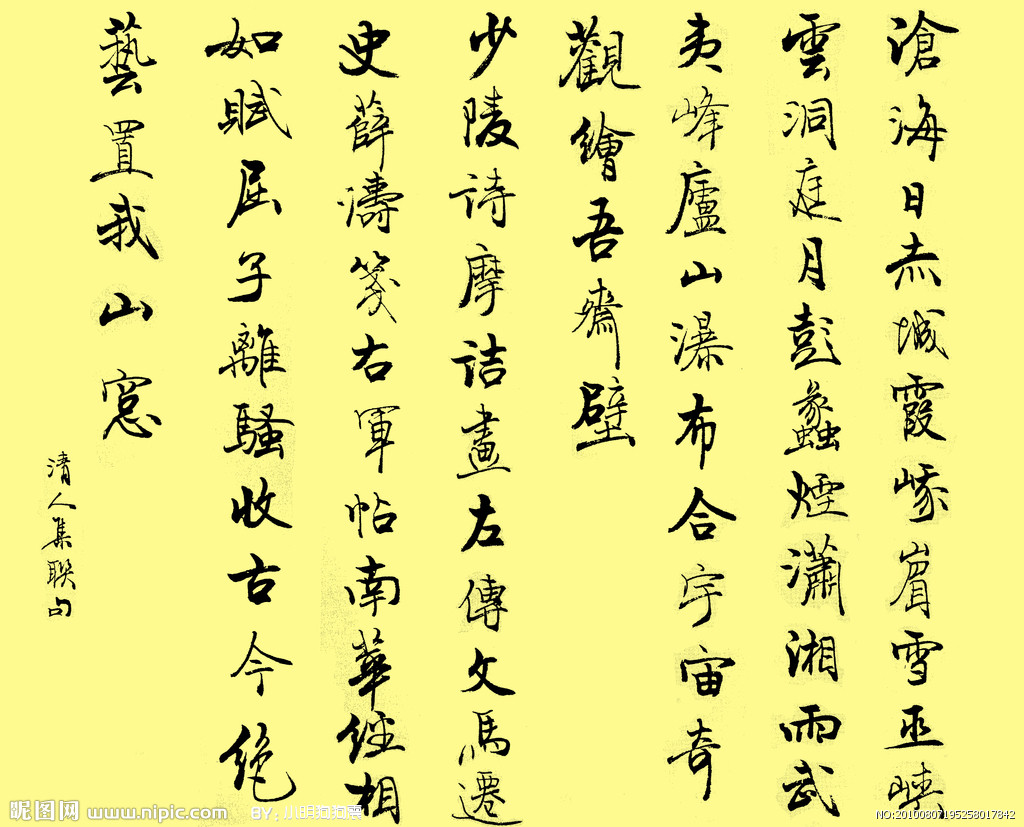 滄海日赤城霞峨嵋雪巫峽
雲洞庭月彭蠡煙瀟湘雨武
夷峰廬山瀑布合宇宙奇
觀繪吾齋壁
少陵詩摩詰畫左傳文馬遷
史薛濤箋右軍帖南華經相
如賦屈子離騷收古今絕
藝置我山窓
清人集聯句
昵图网 www.nipic.com BY:
NO:20100807195258017842